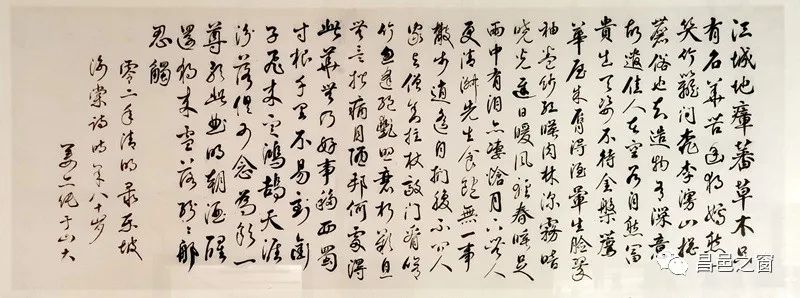 江城地瘴蕃草木只
有名華苦幽独嫣然一
笑竹籬间桃李漫山総
麁俗也知造物有深意
故遣佳人在空谷自然富
貴生天姿不待金槃薦
華屋朱脣得酒暈生脸翠
袖卷纱红暎肉林深霧暗
晓光遲日暖風轻春睡足
雨中有泪亦凄怆月下无人
更清淑先生食飽無一事
散步逍遥自捫腹不问人
家与僧舍拄杖敲门看修
竹忽逢绝艷照衰朽歎息
无言揩病目陋邦何處得
此華无乃好事移西蜀
寸根千里不易到衔
子飛来定鴻鵠天涯
流落俱可念為飲一
尊歌此曲明朝酒醒
還独来雪落紛紛那
忍觸
零二年清明录东坡
海棠诗时年八十岁
于山大
昌邑之窗